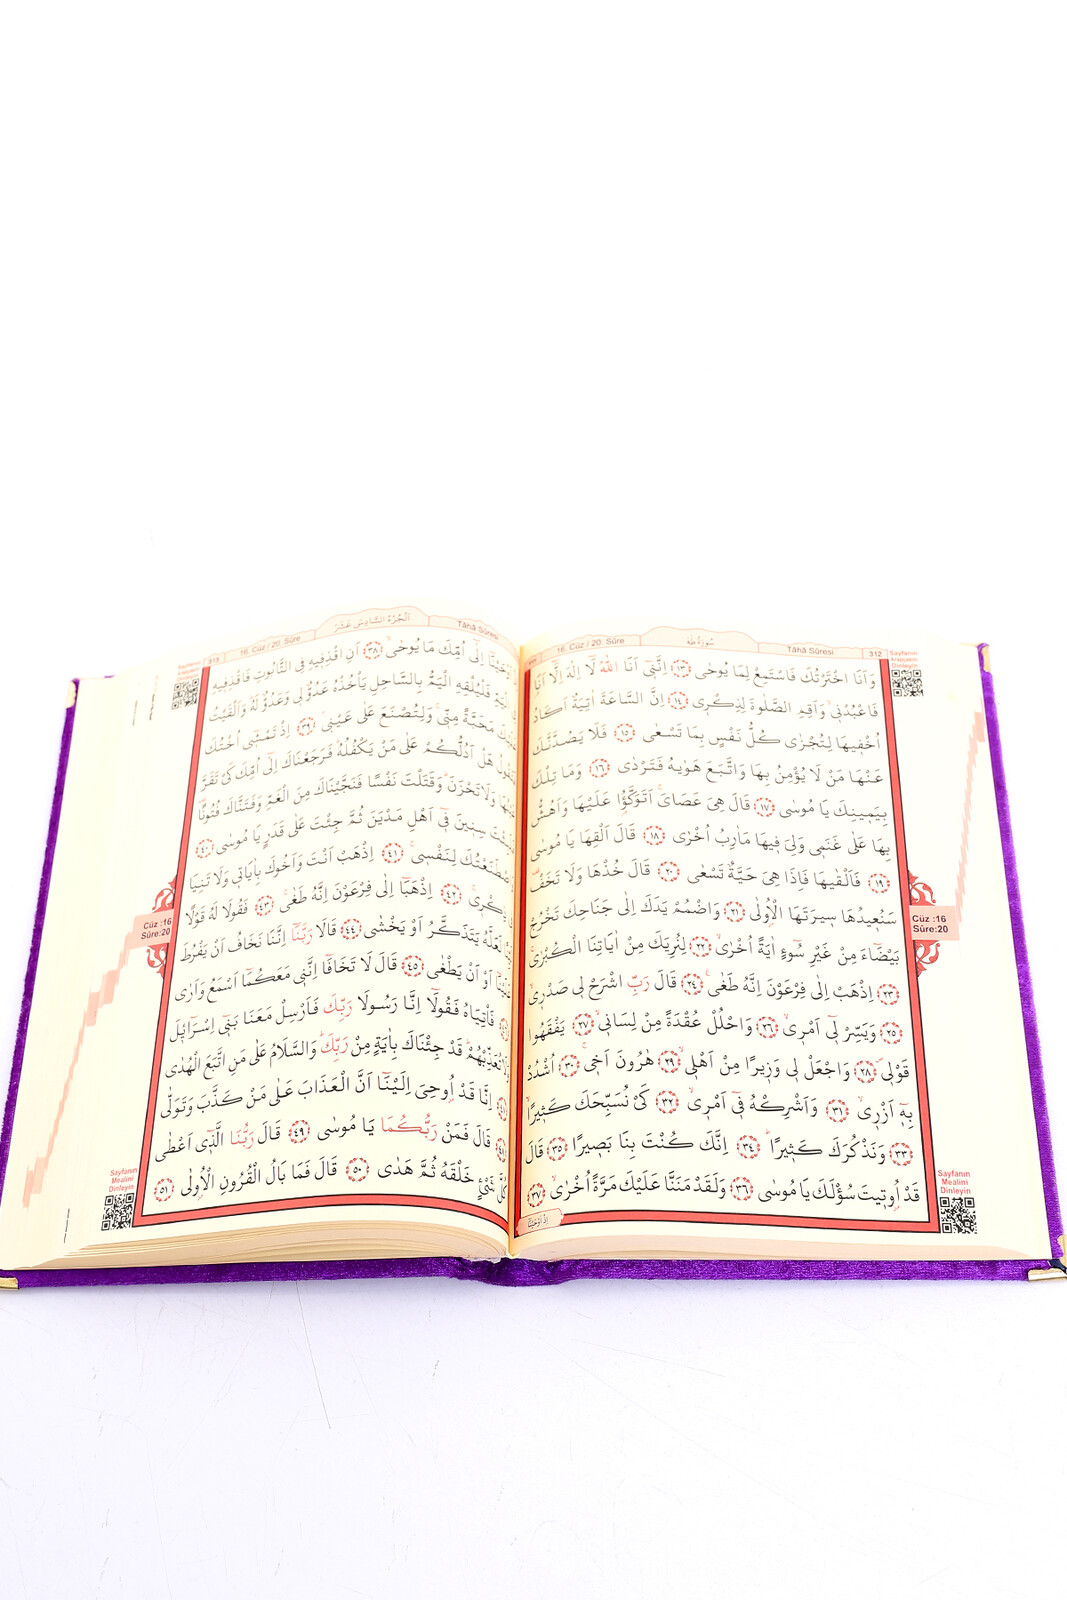 سُورَةُ طٰهٰ
16. Cüz / 20. Sûre
Tâhâ Sûresi
312
Sayfanın
Arapçasını
Dinleyin
وَاَنَا اخْتَرْتُكَ فَاسْتَمِعْ لِمَا يُوحٰى ﴿١٣﴾ اِنَّنٖٓى اَنَا اللّٰهُ لَٓا اِلٰهَ اِلَّٓا اَنَا
فَاعْبُدْنٖىۙ وَاَقِمِ الصَّلٰوةَ لِذِكْرٖى ﴿١٤﴾ اِنَّ السَّاعَةَ اٰتِيَةٌ اَكَادُ
اُخْفٖيهَا لِتُجْزٰى كُلُّ نَفْسٍ بِمَا تَسْعٰى ﴿١٥﴾ فَلَا يَصُدَّنَّكَ
عَنْهَا مَنْ لَا يُؤْمِنُ بِهَا وَاتَّبَعَ هَوٰيهُ فَتَرْدٰى ﴿١٦﴾ وَمَا تِلْكَ
بِيَمٖينِكَ يَا مُوسٰى ﴿١٧﴾ قَالَ هِىَ عَصَاىَۚ اَتَوَكَّؤُ۬ا عَلَيْهَا وَاَهُشُّ
بِهَا عَلٰى غَنَمٖى وَلِىَ فٖيهَا مَاٰرِبُ اُخْرٰى ﴿١٨﴾ قَالَ اَلْقِهَا يَا مُوسٰى
﴿١٩﴾ فَاَلْقٰيهَا فَاِذَا هِىَ حَيَّةٌ تَسْعٰى ﴿٢٠﴾ قَالَ خُذْهَا وَلَا تَخَفْ۠
سَنُعٖيدُهَا سٖيرَتَهَا الْاُو۫لٰى ﴿٢١﴾ وَاضْمُمْ يَدَكَ اِلٰى جَنَاحِكَ تَخْرُجْ
بَيْضَٓاءَ مِنْ غَيْرِ سُٓوءٍ اٰيَةً اُخْرٰىۙ ﴿٢٢﴾ لِنُرِيَكَ مِنْ اٰيَاتِنَا الْكُبْرٰىۚ
﴿٢٣﴾ اِذْهَبْ اِلٰى فِرْعَوْنَ اِنَّهُ طَغٰى۟ ﴿٢٤﴾ قَالَ رَبِّ اشْرَحْ لٖى صَدْرٖىۙ
﴿٢٥﴾ وَيَسِّرْ لٖٓى اَمْرٖىۙ ﴿٢٦﴾ وَاحْلُلْ عُقْدَةً مِنْ لِسَانٖىۙ ﴿٢٧﴾ يَفْقَهُوا
قَوْلٖىࣕ ﴿٢٨﴾ وَاجْعَلْ لٖى وَزٖيرًا مِنْ اَهْلٖىۙ ﴿٢٩﴾ هٰرُونَ اَخٖىۚ ﴿٣٠﴾ اُشْدُدْ
بِهٖٓ اَزْرٖىۙ ﴿٣١﴾ وَاَشْرِكْهُ فٖٓى اَمْرٖىۙ ﴿٣٢﴾ كَىْ نُسَبِّحَكَ كَثٖيرًاۙ
﴿٣٣﴾ وَنَذْكُرَكَ كَثٖيرًاؕ ﴿٣٤﴾ اِنَّكَ كُنْتَ بِنَا بَصٖيرًا ﴿٣٥﴾ قَالَ
قَدْ اُو۫تٖيتَ سُؤْلَكَ يَا مُوسٰى ﴿٣٦﴾ وَلَقَدْ مَنَنَّا عَلَيْكَ مَرَّةً اُخْرٰىۙ ﴿٣٧﴾
اِذْ اَوْحَيْنَٓا
Cüz :16
Sûre:20
Sayfanın
Mealini
Dinleyin
اَلْجُزْءُ السَّادِسَ عَشَرَ
Tâhâ Sûresi
16. Cüz / 20. Sûre
313
Sayfanın
Arapçasını
Dinleyin
اِلٰٓى اُمِّكَ مَا يُوحٰىۙ ﴿٣٨﴾ اَنِ اقْذِفٖيهِ فِى التَّابُوتِ فَاقْذِفٖيهِ
فَلْيُلْقِهِ الْيَمُّ بِالسَّاحِلِ يَأْخُذْهُ عَدُوٌّ لٖى وَعَدُوٌّ لَهُؕ وَاَلْقَيْتُ
مَحَبَّةً مِنّٖىۚ وَلِتُصْنَعَ عَلٰى عَيْنٖىۢ ﴿٣٩﴾ اِذْ تَمْشٖٓى اُخْتُكَ
هَلْ اَدُلُّكُمْ عَلٰى مَنْ يَكْفُلُهُؕ فَرَجَعْنَاكَ اِلٰٓى اُمِّكَ كَىْ تَقَرَّ
وَلَا تَحْزَنَؕ وَقَتَلْتَ نَفْسًا فَنَجَّيْنَاكَ مِنَ الْغَمِّ وَفَتَنَّاكَ فُتُونًا۠
سِنٖينَ فٖٓى اَهْلِ مَدْيَنَ ثُمَّ جِئْتَ عَلٰى قَدَرٍ يَا مُوسٰى ﴿٤٠﴾
لِنَفْسٖىۚ ﴿٤١﴾ اِذْهَبْ اَنْتَ وَاَخُوكَ بِاٰيَاتٖى وَلَا تَنِيَا
﴿٤٢﴾ اِذْهَبَٓا اِلٰى فِرْعَوْنَ اِنَّهُ طَغٰىۚ ﴿٤٣﴾ فَقُولَا لَهُ قَوْلًا
لَعَلَّهُ يَتَذَكَّرُ اَوْ يَخْشٰى ﴿٤٤﴾ قَالَا رَبَّنَٓا اِنَّنَا نَخَافُ اَنْ يَفْرُطَ
اَوْ اَنْ يَطْغٰى ﴿٤٥﴾ قَالَ لَا تَخَافَٓا اِنَّنٖى مَعَكُمَٓا اَسْمَعُ وَاَرٰى
فَأْتِيَاهُ فَقُولَٓا اِنَّا رَسُولَا رَبِّكَ فَاَرْسِلْ مَعَنَا بَنٖٓى اِسْرَٓائٖلَ
قَدْ جِئْنَاكَ بِاٰيَةٍ مِنْ رَبِّكَؕ وَالسَّلَامُ عَلٰى مَنِ اتَّبَعَ الْهُدٰى
اِنَّا قَدْ اُو۫حِىَ اِلَيْنَٓا اَنَّ الْعَذَابَ عَلٰى مَنْ كَذَّبَ وَتَوَلّٰى
قَالَ فَمَنْ رَبُّكُمَا يَا مُوسٰى ﴿٤٩﴾ قَالَ رَبُّنَا الَّذٖٓى اَعْطٰى
كُلَّ شَىْءٍ خَلْقَهُ ثُمَّ هَدٰى ﴿٥٠﴾ قَالَ فَمَا بَالُ الْقُرُونِ الْاُو۫لٰى ﴿٥١﴾
Cüz :16
Sûre:20
Sayfanın
Mealini
Dinleyin